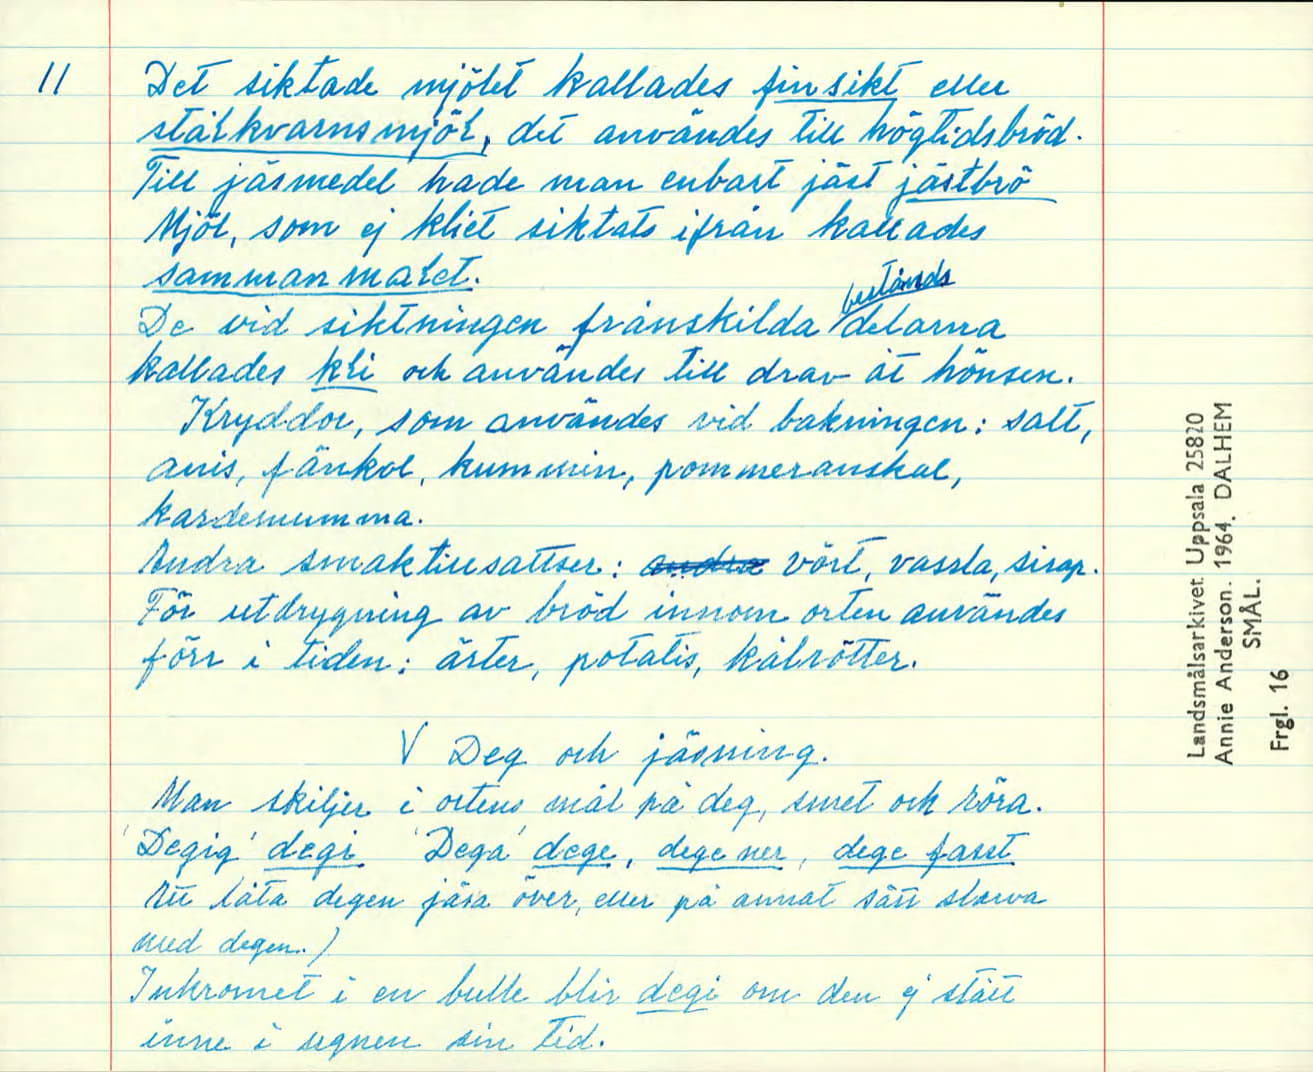 11
Det siktade mjölet kallades finsikt eller
stälkvarnsmjöl, det användes till högtidsbröd.
Till jäsmedel hade man enbart jäst jästbrö
Mjöl, som ej kliet siktats ifrån kallades
sammanmalet.
bestånds
De vid siktningen frånskilda delarna
kallades kli och användes till drav åt hönsen.
Kryddor, som användes vid bakningen: salt,
anis, fänkol, kummin, pommeranskal,
kardemumma.
Andra smaktillsattser: andra vört, vassla, sirap.
För utdrygning av bröd innom orten användes
förr i tiden: ärter, potatis, kålrötter.
V Deg och jäsning.
Man skiljer i ortens mål på deg, smet och röra.
'Degig' degi 'Dega' dege, dege ner, dege fasst
Att låta degen jäsa över, eller på annat sätt slarva
med degen.)
Inkromet i en bulle blir degi om den ej stått
inne i ugnen sin tid.
Landsmålsarkivet Uppsala 25820
Annie Anderson. 1964. DALHEM
SMÅL.
Frgl. 16